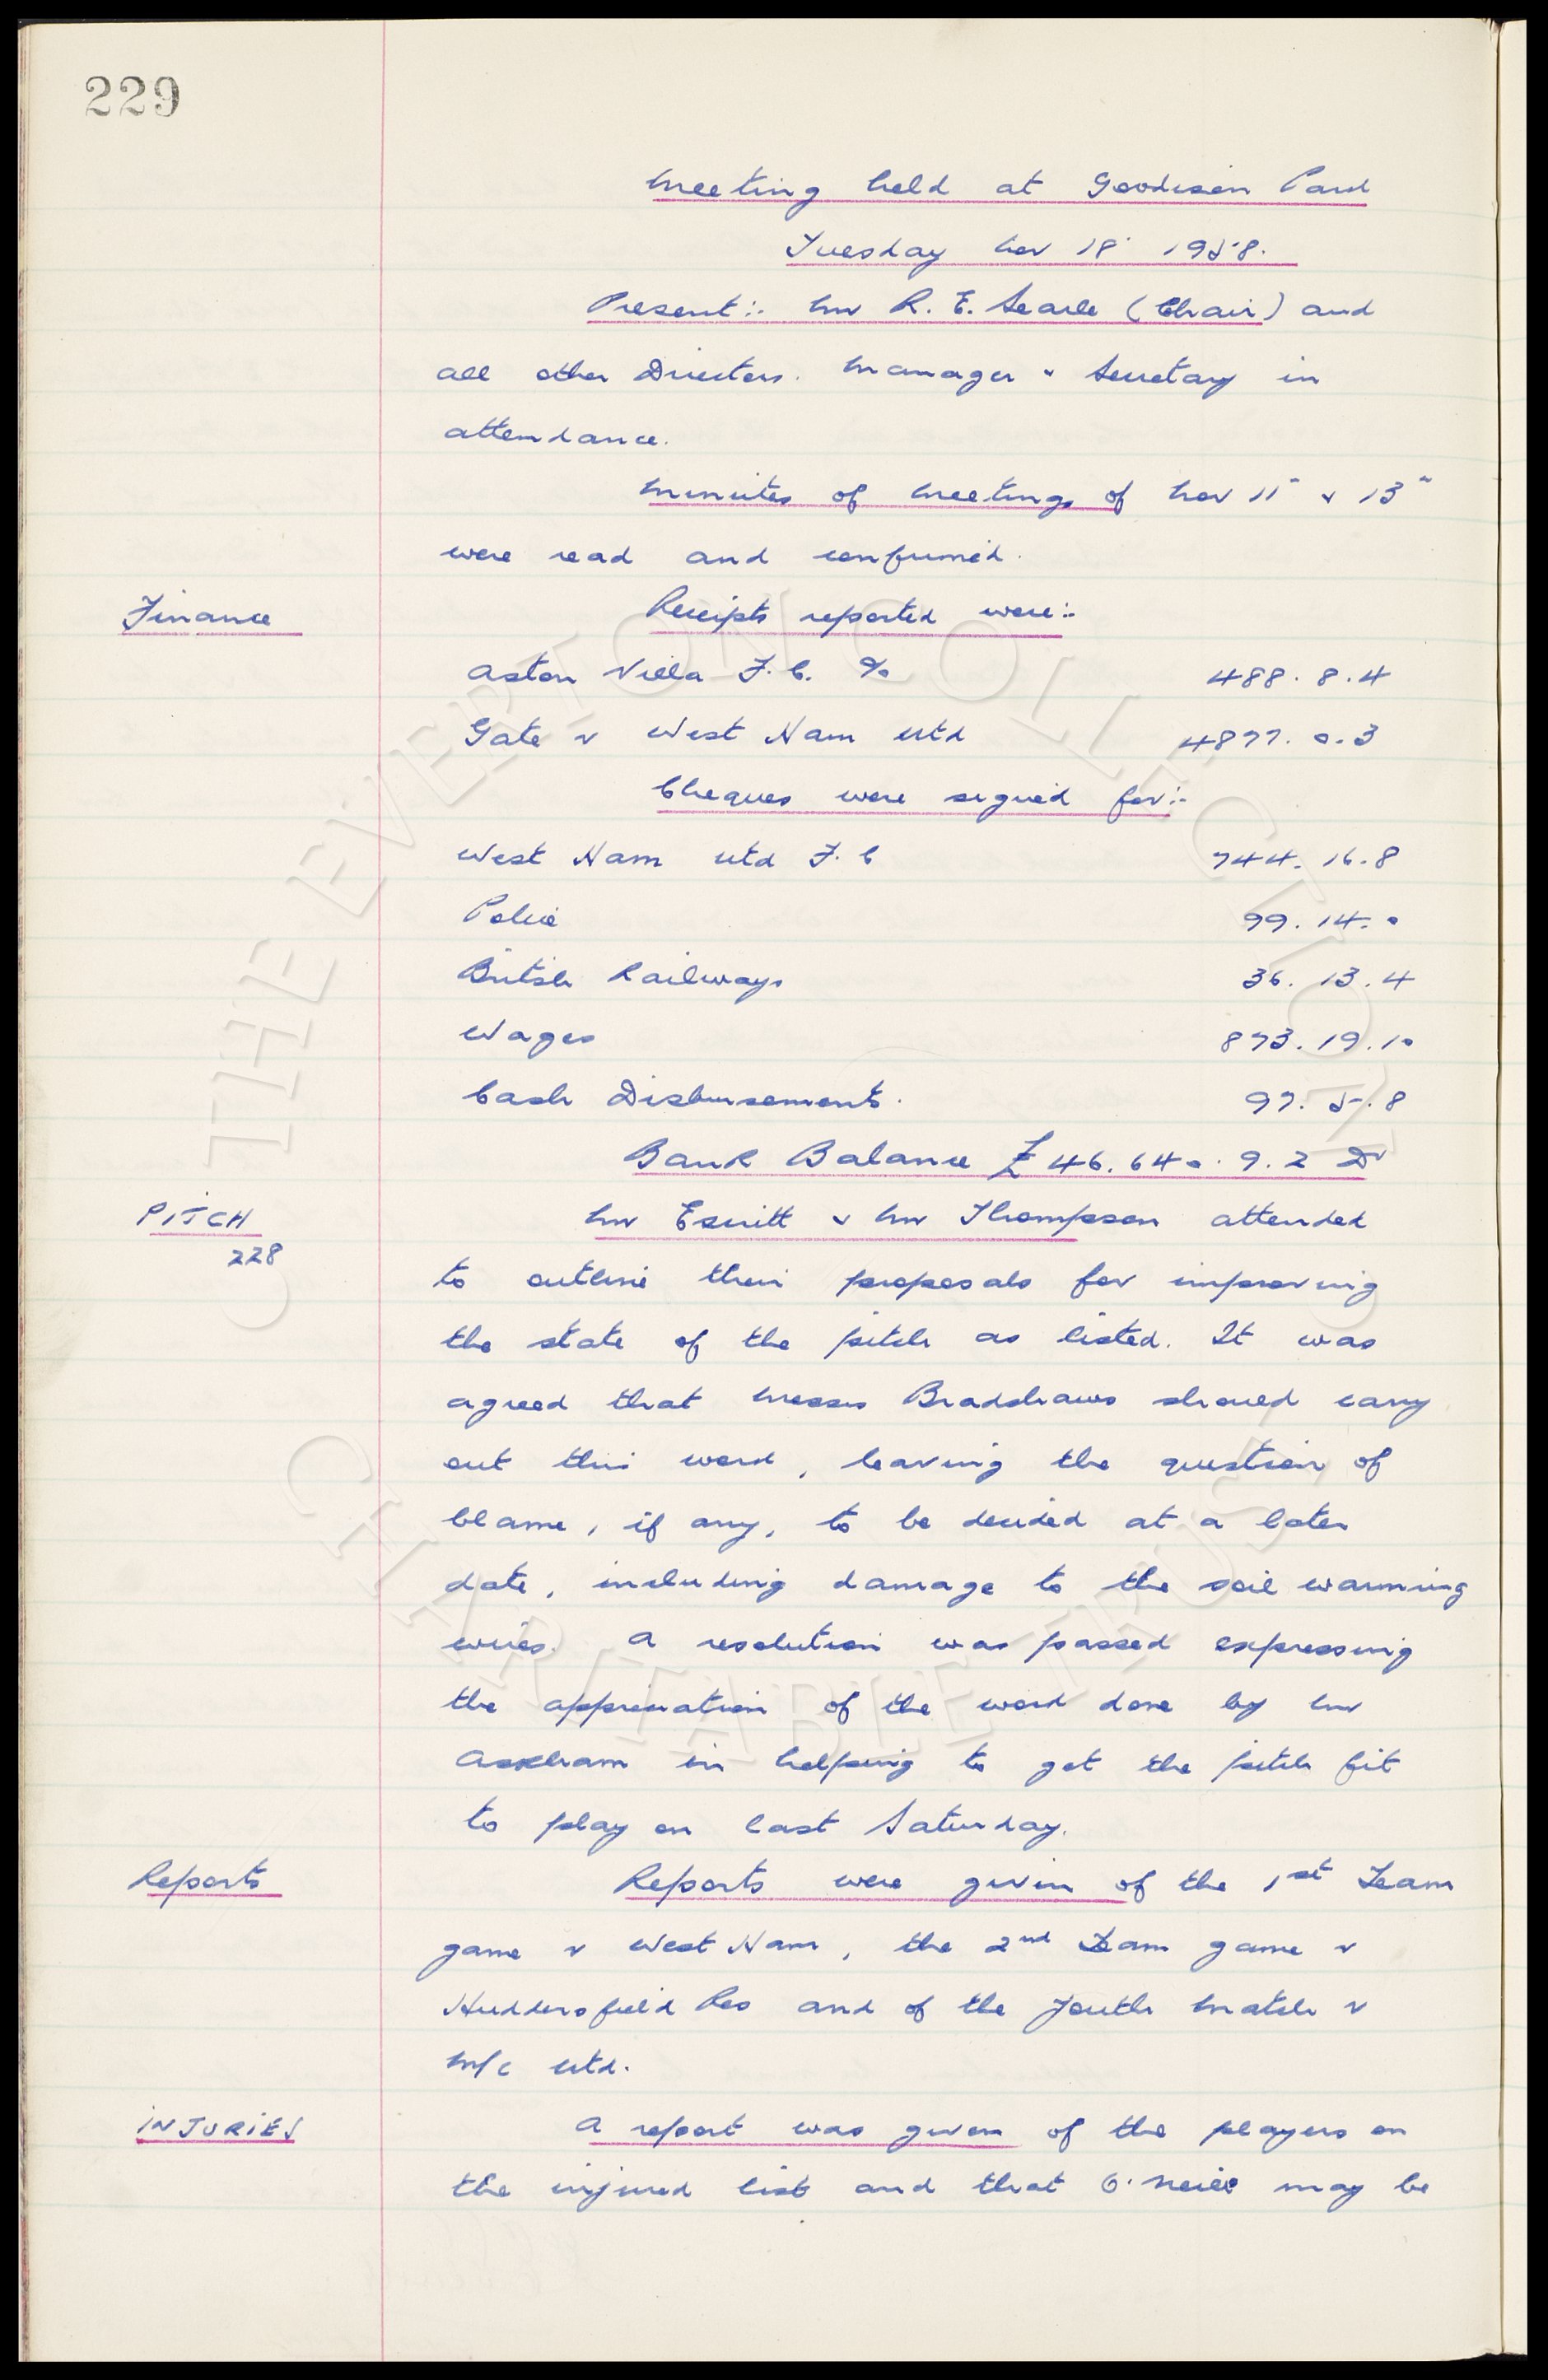 229
Meeting held at Goodison Park
Tuesday Nov 18" 1958.
Present:- Mr R. E. Searle (Chair) and
all other Directors. Manager & Secretary in
attendance.
Minutes of Meetings of Nov 11" & 13"
were read and confirmed.
Finance
Receipts reported were:-
Aston Villa F.C. % 488. 8. 4
Gate v West Ham Utd 4877. 0. 3
Cheques were signed for:-
West Ham Utd F.C 744. 16. 8
Police 99. 14. 0
British Railways 36. 13. 4
Wages 873. 19. 10
Cash Disbursements. 97. 5. 8
Bank Balance £46.640. 9. 2 Dr
PITCH
228
Mr Escritt & Mr Thompson attended
to outline their proposals for improving
the state of the pitch as listed. It was
agreed that Messrs Bradshaws should carry
out this work, leaving the question of
blame, if any, to be decided at a later
date, including damage to the soil warming
wires. A resolution was passed expressing
the appreciation of the work done by Mr
Askham in helping to get the pitch fit
to play on last Saturday.
Reports
Reports were given of the 1st Team
game v West Ham, the 2nd Team game v
Huddersfield Res and of the Youth Match v
M/c Utd.
INJURIES
A report was given of the players on
the injured list and that O'Neill may be
THE EVERTON COLLECTION
CHARITABLE TRUST